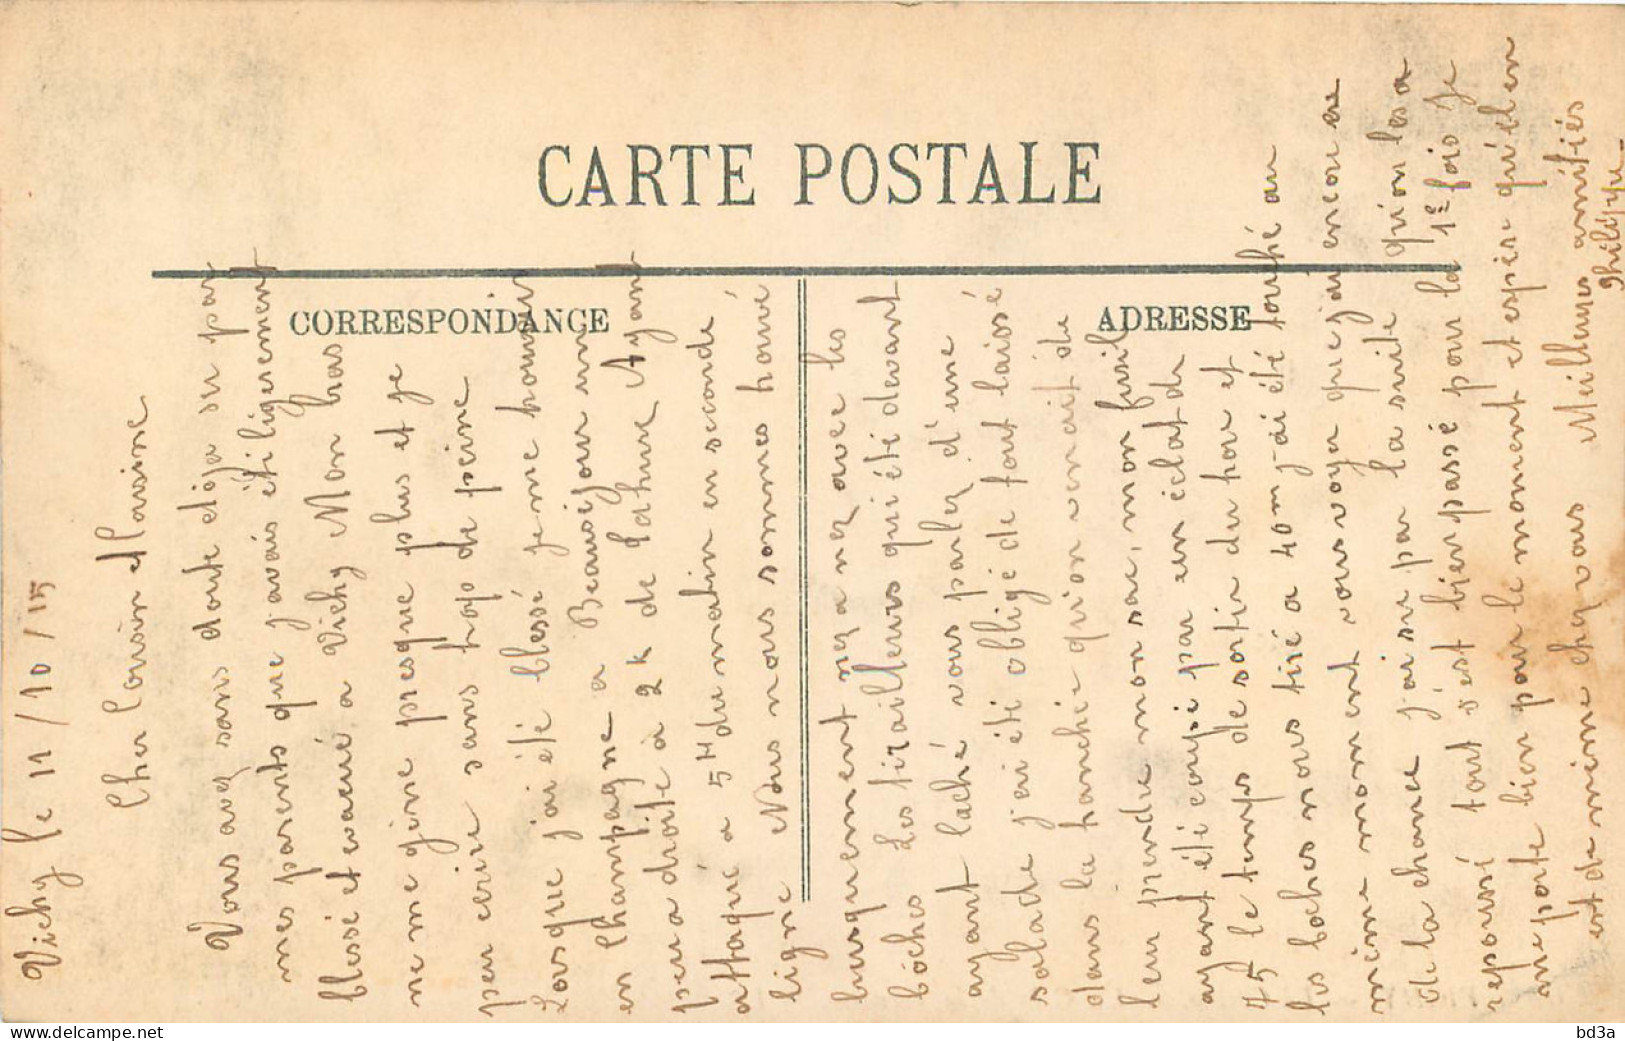 CARTE POSTALE
CORRESPONDANCE
ADRESSE
Vichy le 11/10/15
Cher Cousin et Cousine
Vous avez sans doute déja su par
mes parents que j'avais été ligerement
blessé et evacué a Vichy Mon bras
ne me gène presque plus et je
peu ecrire sans trop de peine
Lorsque j'ai été blessé je me trouvais
en Champagne a Beauséjour un
peu a droite à 2 k de Pahure Ayant
attaqué a 5H du matin en seconde
ligne Nous nous sommes trouvé
brusquement nez a nez avec les
bôches Les tirailleurs qui été devant
ayant laché vous parlez d'une
salade j'ai été obligé de tout laissé
dans la tranchée qu'on venait de
leur prendre mon sac, mon fusil
ayant été coupé par un éclat de
75 le temps de sortir du trou et
les boches nous tiré a 40m j'ai été touché au
même moment vous voyez que j'ai encore eu
de la chance j'ai su par la suite qu'on les a
repoussé tout s'est bien passé pour la 1e fois Je
me porte bien pour le moment et espère qu'il en
est de même chez vous Meilleures amitiés
Philippe
bd3a